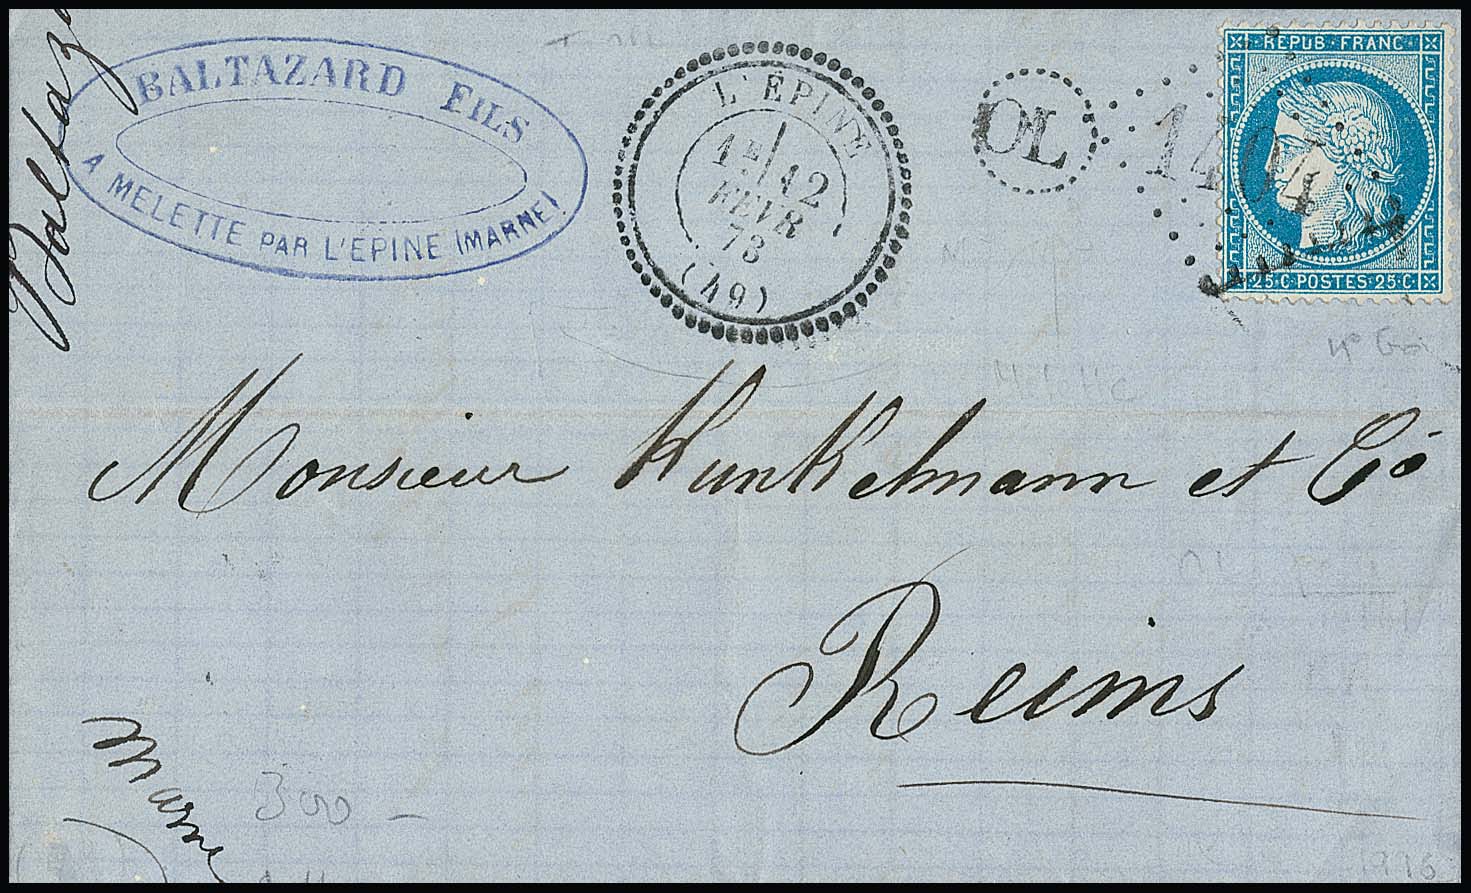 Baltaz
BALTAZARD FILS
A MELETTE PAR L'EPINE (MARNE)
L'ÉPINE
1E/12
FEVR
73
(49)
OL
1404
REPUB FRANC
25·C·POSTES·25·C
Monsieur Kunkelmann et Cie
Reims
Marne
300 -